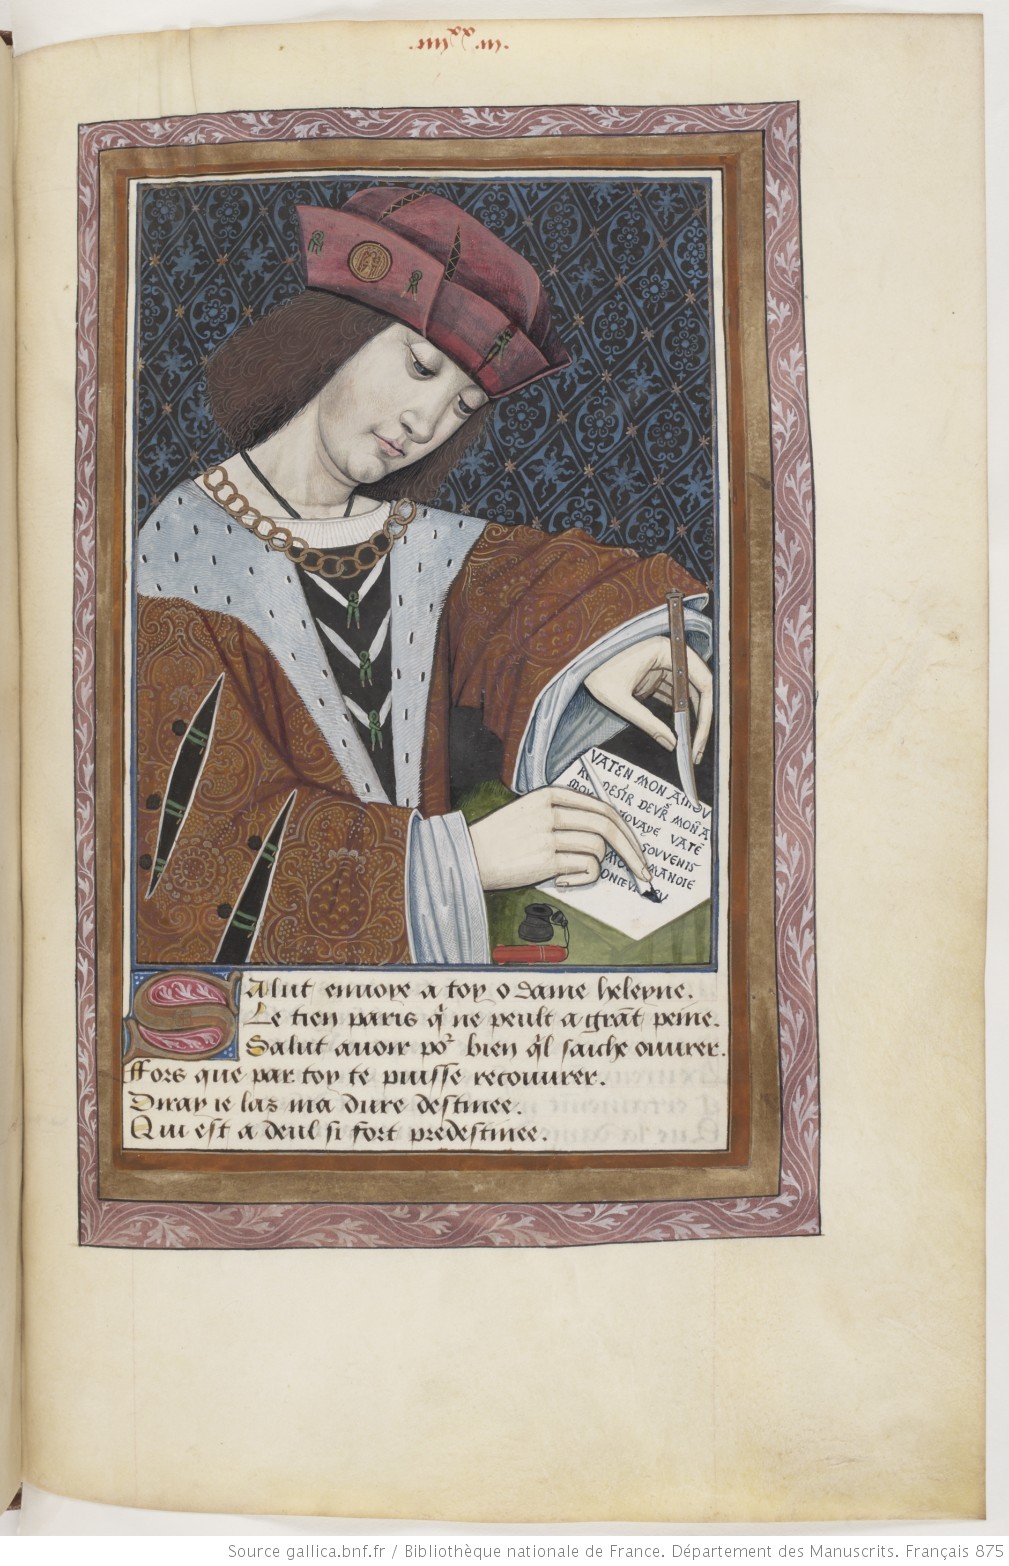 .iiii.xx.iii.
VATEN MON AMOV
DESIR DEVR̃ MON̄ A
VATĒ
SOVVENIS
MANDIE
Salut enuoye a toy o dame heleyne.
Le tien paris q̃ ne peult a grãt peine.
Salut auoir poᷣ bien q̃l saiche ouurer.
ffors que par toy te puisse recouurer.
Diray ie las ma dure destinee.
Qui est a deul si fort predestinee.
Source gallica.bnf.fr / Bibliothèque nationale de France. Département des Manuscrits. Français 875